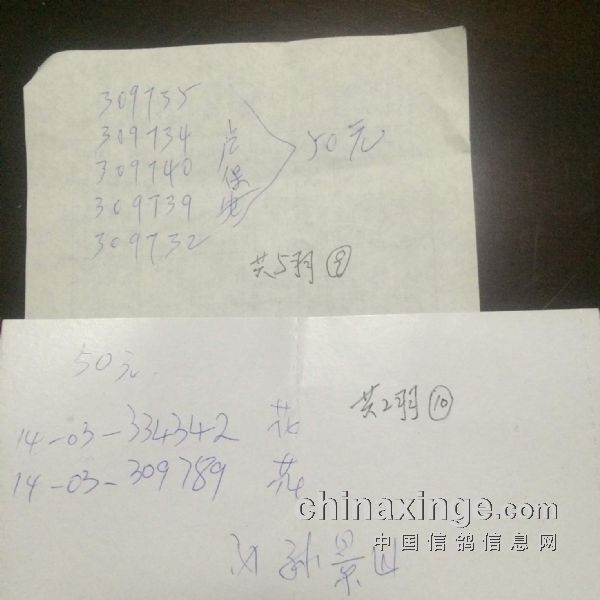 309735
309734
309740
309739
309732
卢保
50元
共5羽⑨
50元.
共2羽⑩
14-03-334342 花
14-03-309789 花
chinaxinge.com
中国信鸽信息网